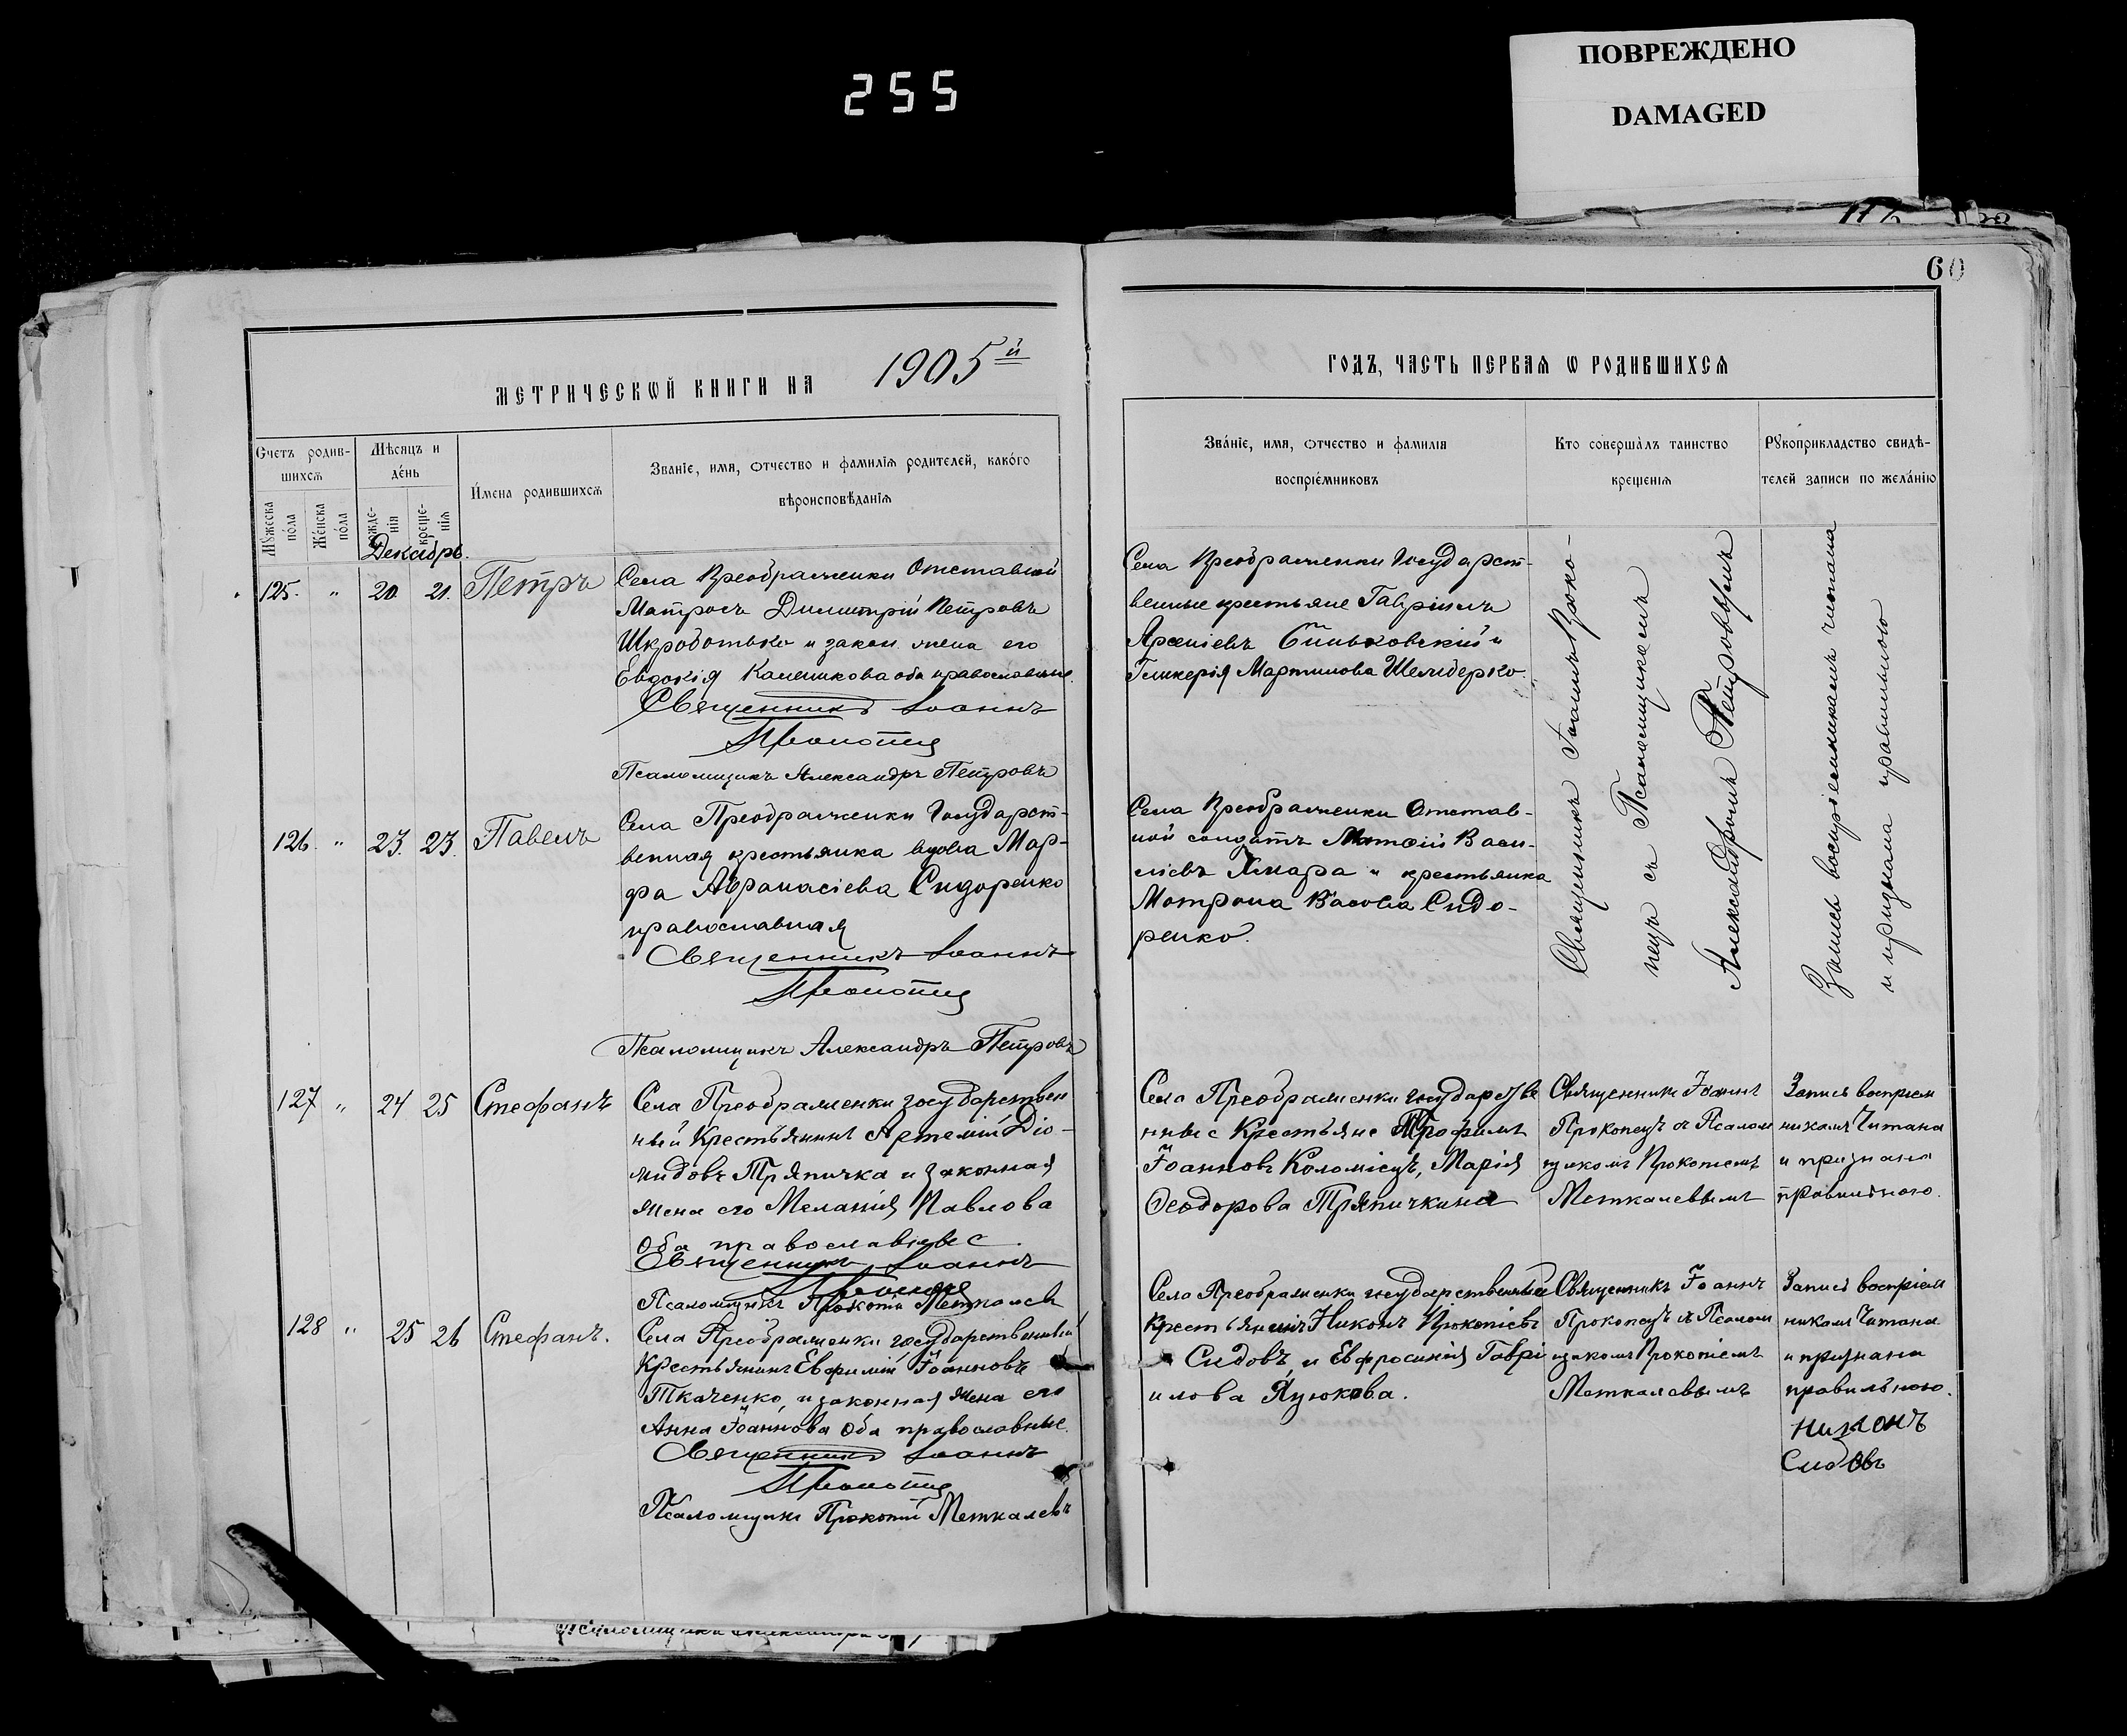 255
ПОВРЕЖДЕНО
DAMAGED
60
МЕТРИЧЕСКѠЙ КНИГИ НА 1905й
ГОДЪ, ЧАСТЬ ПЕРВАѦ Ѡ РОДИВШИХСѦ
Счетъ родив-
шихсѧ
Мꙋжеска
пола
Женска
пола
Мѣсяцъ и
день
рожде-
нія
креще-
нія
Имена родившихсѧ
Званіе, имя, ѡтчество и фамиліѧ родителей, какого
вѣроисповѣданіѧ
Званіе, имя, ѡтчество и фамиліѧ
воспріемниковъ
Кто совершалъ таинство
крещеніѧ
Рꙋкоприкладство свидѣ-
телей записи по желанію
Декабрь.
125. " 20 21. Петръ
Села Преображенки Отставной
Матросъ Димитрій Петровъ
Шкроботько и закон. жена его
Евдокія оба православные.
Священникъ Іоаннъ
Прокопецъ
Псаломщикъ Александръ Петровъ
Села Преображенки Государст-
венные крестьяне Гавріилъ
Арсеніевъ и
Гликерія Мартинова
Священникъ Іоаннъ Проко-
пецъ съ Псаломщикомъ
Александромъ Петровымъ
Запись воспріемникамъ читана
и признана правильною
126. " 23. 23. Павелъ
Села Преображенки Государст-
венная крестьянка вдова Мар-
фа Афанасіева Сидоренко
православная
Священникъ Іоаннъ
Прокопецъ
Псаломщикъ Александръ Петровъ
Села Преображенки Отстав-
ной солдатъ Матфій Васи-
ліевъ Хмара и крестьянка
Мотрона Сидо-
ренко.
127 " 24 25 Стефанъ
Села Преображенки государствен
ный Крестьянинъ Артемій Діо-
мидовъ Тряпичка и законная
жена его Меланія Павлова
оба православные
Священникъ Іоаннъ
Прокопецъ
Псаломщикъ Прокопій Меткалевъ
Села Преображенки государстве
нные Крестьяне Трофимъ
Іоанновъ Коломіецъ, Марія
Ѳеодорова Тряпичкина
Священникъ Іоаннъ
Прокопецъ съ Псалом
щикомъ Прокопіемъ
Меткалевымъ
Запись воспріем
никамъ Читана
и признана
правильною.
128 " 25 26 Стефанъ.
Села Преображенки государственный
Крестьянинъ Евфимій Іоанновъ
Ткаченко, и законная жена его
Анна Іоаннова оба православные.
Священникъ Іоаннъ
Прокопецъ
Псаломщикъ Прокопій Меткалевъ
Села Преображенки государственные
Крестьянинъ Никонъ Прокопіевъ
Сидовъ, и Евфросинія Гаври
илова
Священникъ Іоаннъ
Прокопецъ съ Псалом
щикомъ Прокопіемъ
Меткалевымъ
Запись воспріем
никамъ Читана
и признана
правильною.
Никонъ
Сидовъ